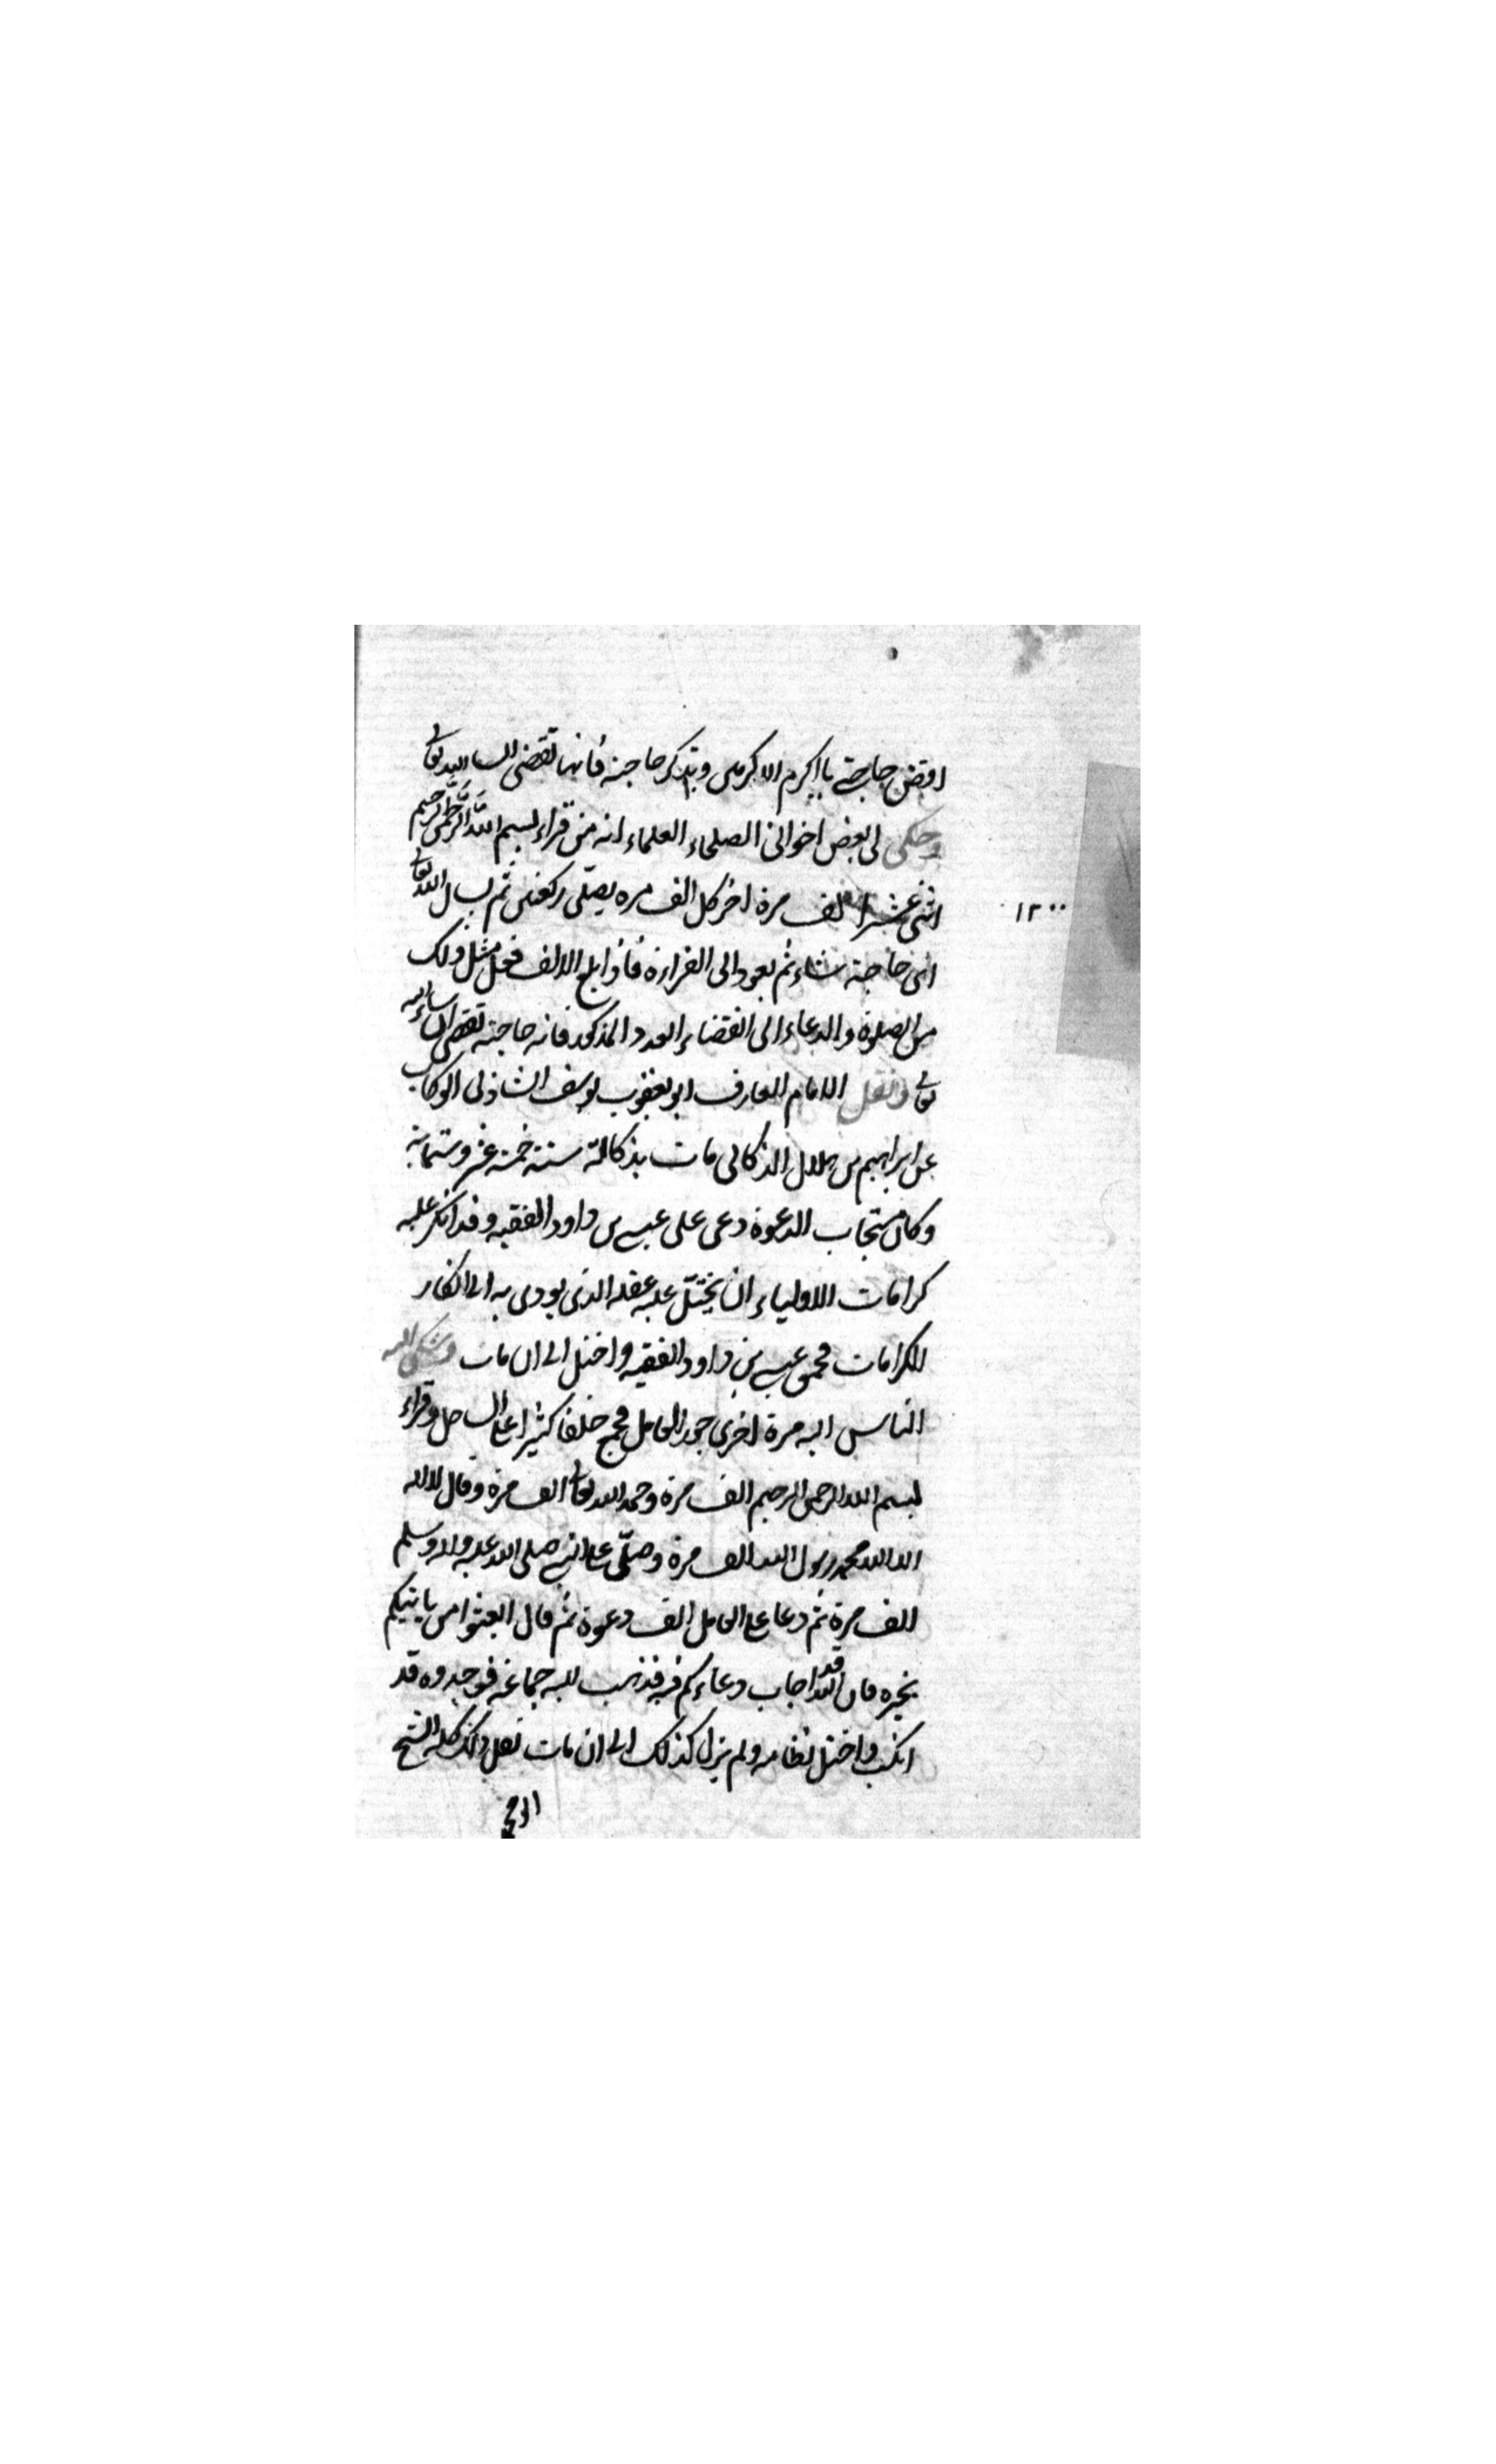 اقض حاجتي يا اكرم الاكرمين ويذكر حاجته فانها تقضى ان شاء الله تعالى
وحكى لي بعض اخواني الصلحاء العلماء انه من قراء بسم اللّه الرّحمن الرّحيم
اثنى عشر الف مرة اخر كل الف مره يصلّى ركعتين ثم يسال الله تعالى
١٢٠٠٠
اى حاجة شاء ثم يعود الى القراءة فاذا بلغ الالف فعل مثل ذلك
من الصلوة والدعاء الى انقضاء العدد المذكور فانه حاجته تقضى ان شاء الله
تعالى ونقل الامام العارف ابو يعقوب يوسف الشاذلى
عن ابراهيم بن هلال الدكالى مات بدكالة سنة خمسة عشر وستمائة
وكان مستجاب الدعوة دعى على عيسى بن داود الفقيه وقد انكر عليه
كرامات الاولياء ان يختلّ عليه عقله الذى يودى به الى انكار
الكرامات فحمق عيسى بن داود الفقيه واختل الى ان مات وشكى اليه
الناس اليه مرة اخرى جور العامل فجمع خلقا كثيرا على الساحل وقراء
بسم الله الرحمن الرحيم الف مرة وحمد الله تعالى الف مرة وقال لا اله
الا الله محمد رسول الله الف مرة وصلّى على النبي صلى الله عليه واله وسلم
الف مرة ثم دعا على العامل الف دعوة ثم قال ابعثوا من ياتيكم
بخبره فان الله قد اجاب دعاءكم فيه فذهب اليه جماعة فوجدوه قد
انكب واختل نظامه ولم يزل كذلك الى ان مات نقل ذلك كله الشيخ